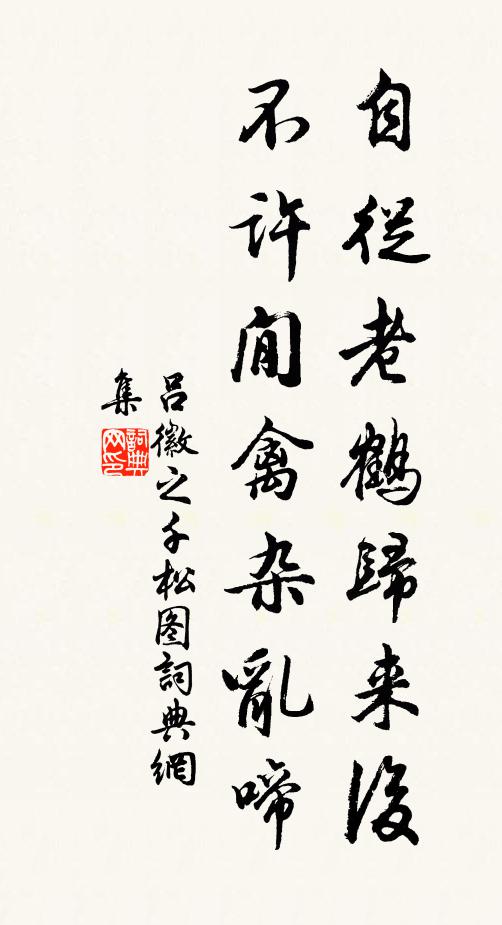 自從老鶴歸来後
不許閒禽杂亂啼
呂徽之千松图詞典網
集
詞典
网印